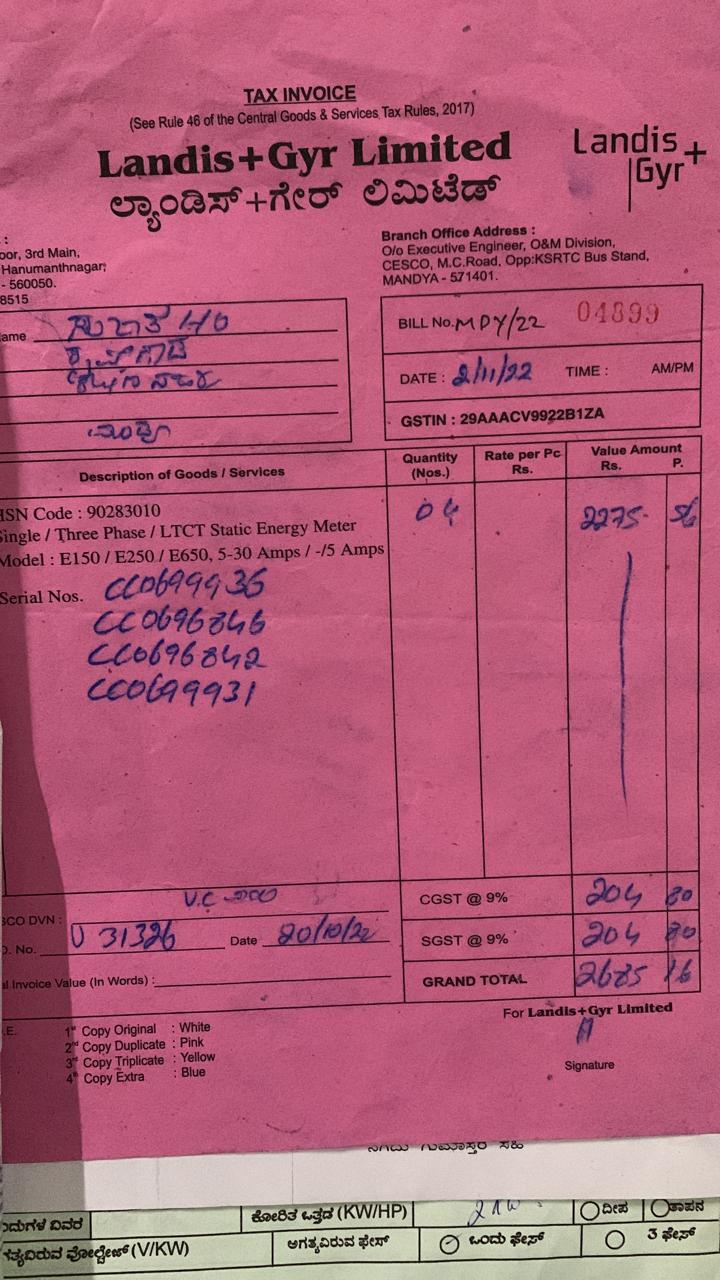 TAX INVOICE
(See Rule 46 of the Central Goods & Services Tax Rules, 2017)
Landis+Gyr Limited
ಲ್ಯಾಂಡಿಸ್+ಗೇರ್ ಲಿಮಿಟೆಡ್
Landis+
Gyr
:
oor, 3rd Main,
Hanumanthnagar,
- 560050.
8515
Branch Office Address :
O/o Executive Engineer, O&M Division,
CESCO, M.C.Road, Opp:KSRTC Bus Stand,
MANDYA - 571401.
ame
BILL No. MDY/22 04899
DATE : 2/11/22 TIME : AM/PM
GSTIN : 29AAACV9922B1ZA
Description of Goods / Services
Quantity (Nos.)
Rate per Pc Rs.
Value Amount
Rs. P.
HSN Code : 90283010 04 2275- 56
Single / Three Phase / LTCT Static Energy Meter
Model : E150 / E250 / E650, 5-30 Amps / -/5 Amps
Serial Nos. CC0699936
CC0696846
CC0696842
CC0699931
V.C
SCO DVN :
CGST @ 9% 204 80
. No. U 31326 Date 20/10/22
SGST @ 9% 204 80
al Invoice Value (In Words) :
GRAND TOTAL 2685 16
.E.
For Landis+Gyr Limited
1st Copy Original : White
2nd Copy Duplicate : Pink
3rd Copy Triplicate : Yellow
4th Copy Extra : Blue
Signature
ಕೋರಿತ ಒತ್ತಡ (KW/HP)
ದೀಪ
ತಾಪನ
ವೋಲ್ಟೇಜ್ (V/KW)
ಅಗತ್ಯವಿರುವ ಫೇಸ್
ಒಂದು ಫೇಸ್
3 ಫೇಸ್